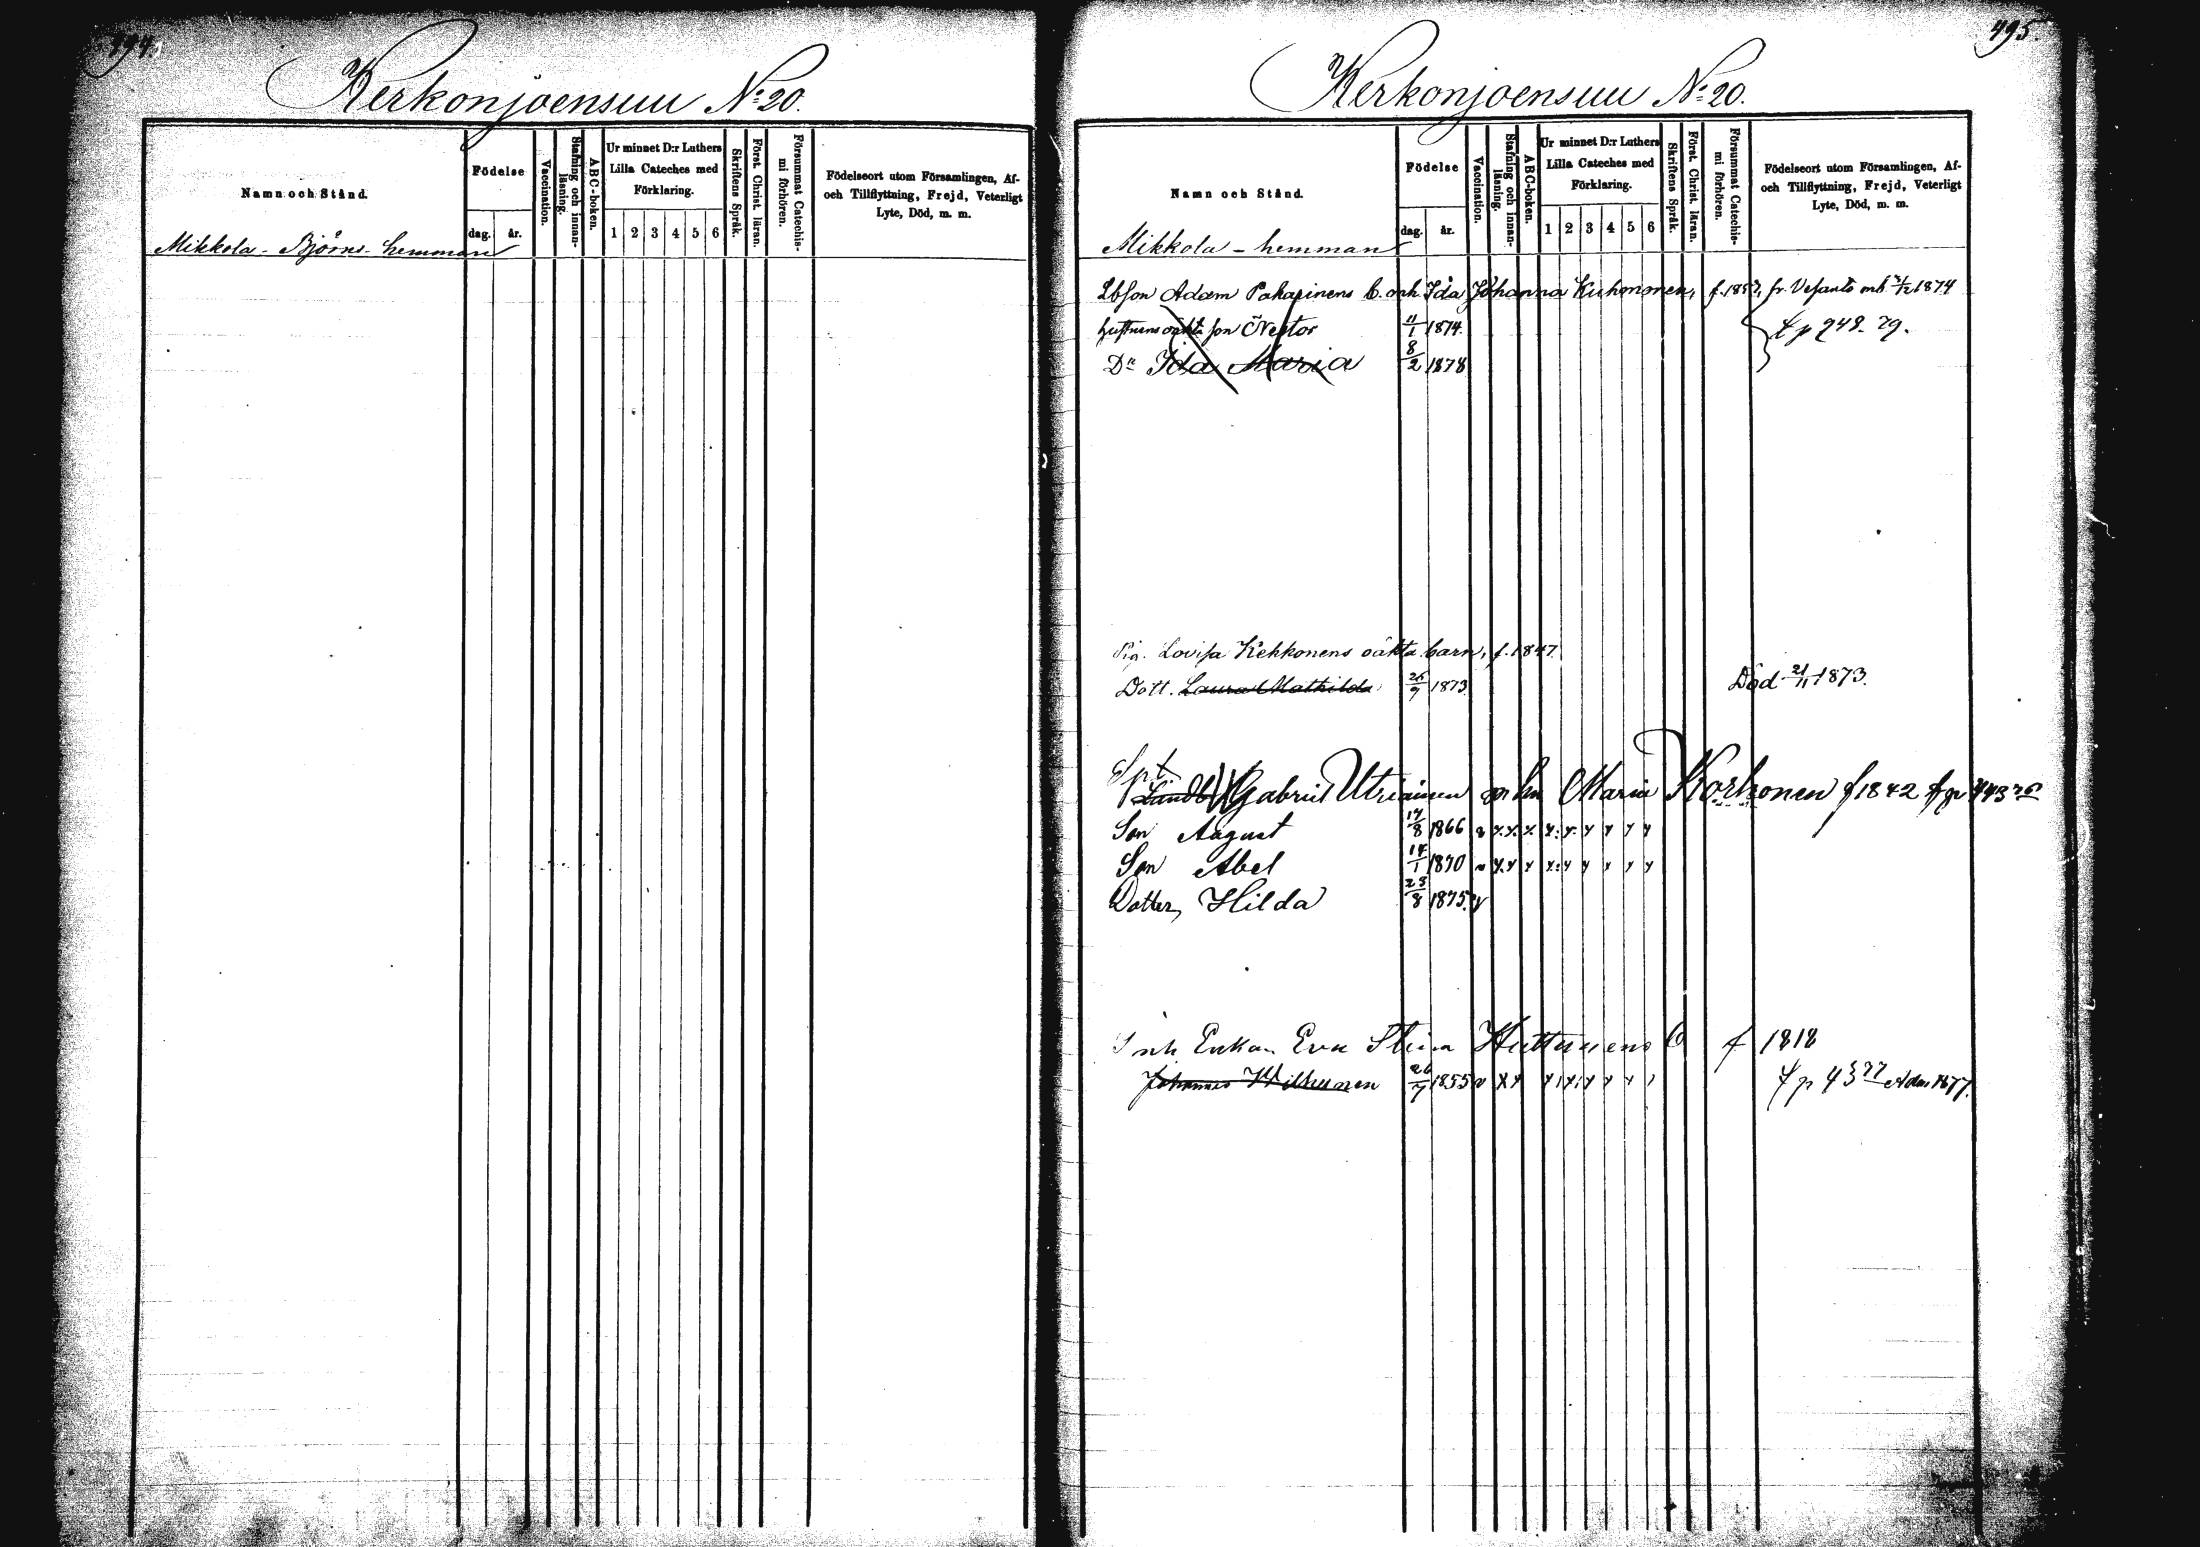 494.
Kerkonjoensuu No 20.
Namn och Stånd.
Födelse
dag.
år.
Vaccination.
Stafning och innanläsning.
ABC-boken.
Ur minnet D:r Luthers
Lilla Cateches med
Förklaring.
1 2 3 4 5 6
Skriftens Språk.
Först. Christ. läran.
Försummat Catechismi förhören.
Födelseort utom Församlingen, Af-
och Tillflyttning, Frejd, Veterligt
Lyte, Död, m. m.
Mikkola - Björns - hemman
495.
Kerkonjoensuu No 20.
Namn och Stånd.
Födelse
dag.
år.
Vaccination.
Stafning och innanläsning.
ABC-boken.
Ur minnet D:r Luthers
Lilla Cateches med
Förklaring.
1 2 3 4 5 6
Skriftens Språk.
Först. Christ. läran.
Försummat Catechismi förhören.
Födelseort utom Församlingen, Af-
och Tillflyttning, Frejd, Veterligt
Lyte, Död, m. m.
Mikkola - hemman
Adam Pakarinens Ida Johanna Kuhmonen, 1874
oäkta son Nestor 11/1 1874.
Dr Ida Maria 8/2 1878
Pig. Lovisa Kekkonens oäkta barn, f. 1847.
Dott. Laura Mathilda 26/9 1873 Död 21/11 1873.
Gabriel Utriainen Maria Korhonen f 1842
Son August 17/8 1866
Son Abel 14/1 1870
Dotter, Hilda 23/8 1875
Inh Enkan Eva Stina Huttunens f 1818
Johannes 26/7 1855 1877.